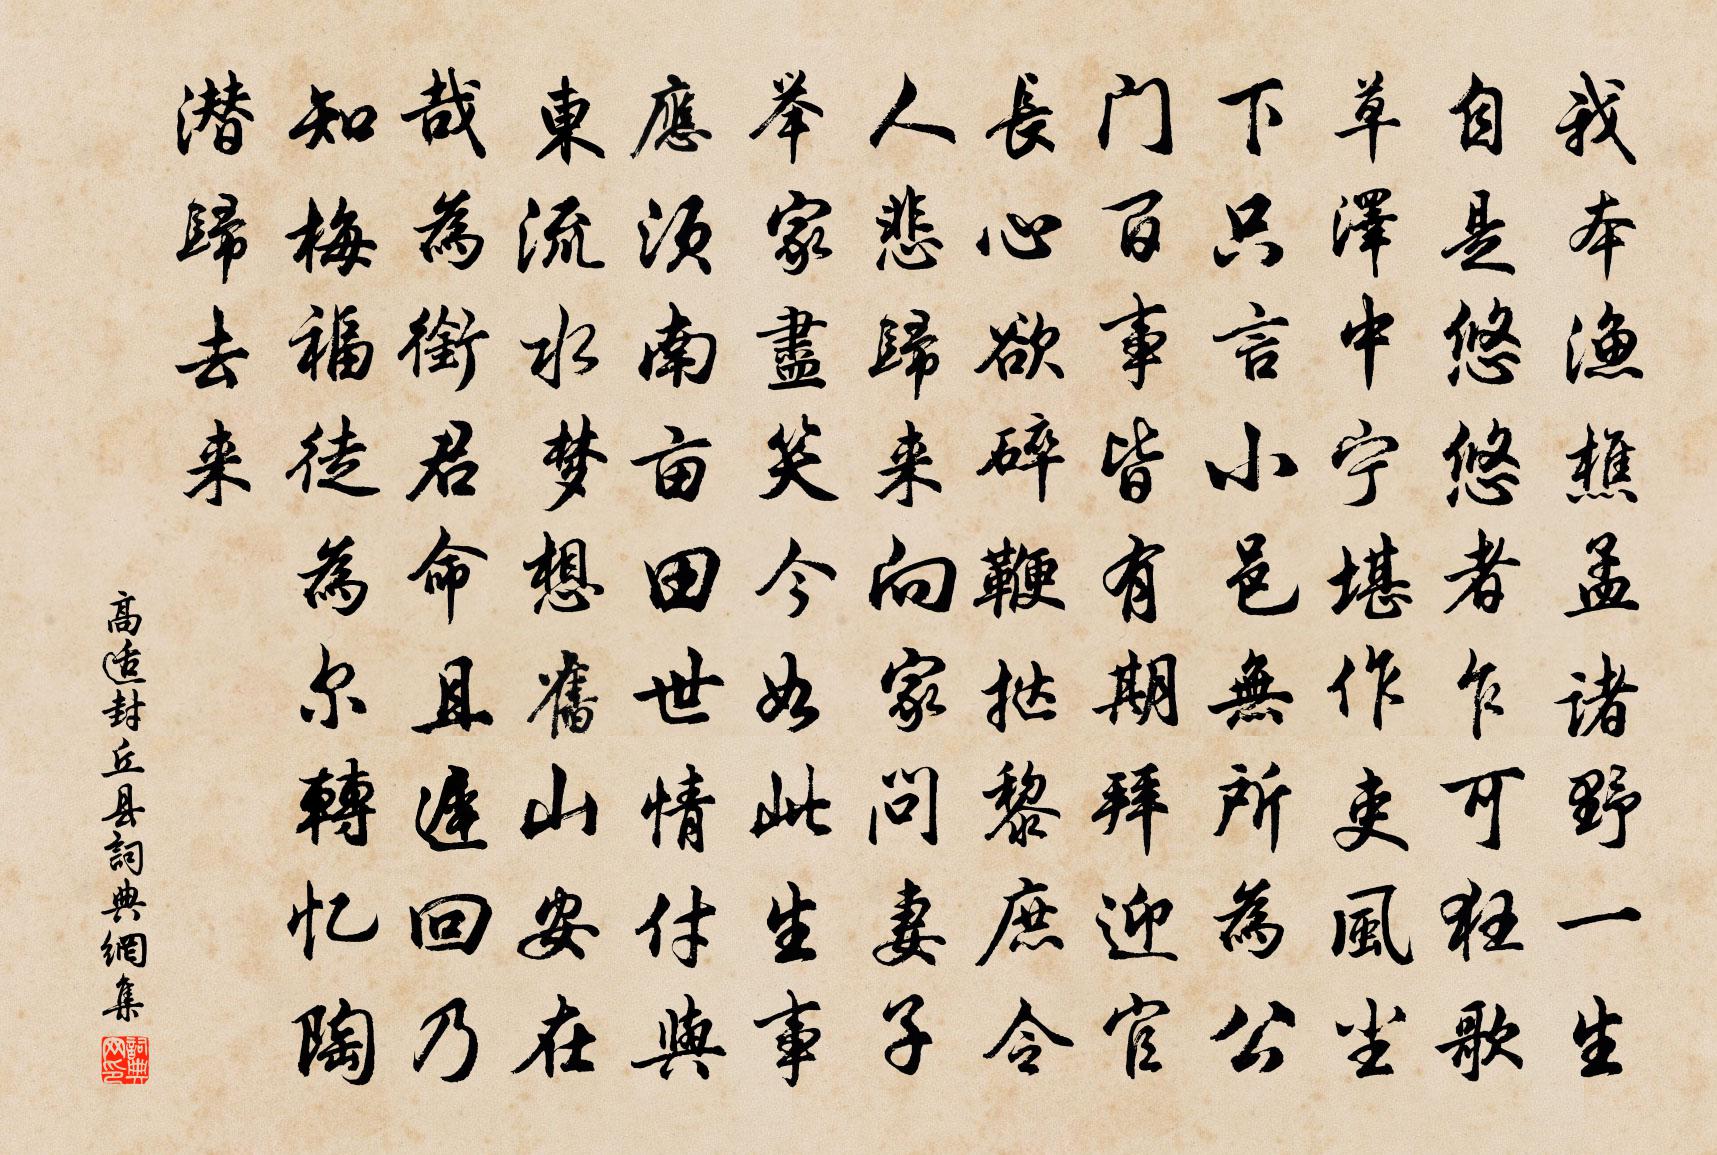 我本漁樵孟诸野一生
自是悠悠者乍可狂歌
草澤中宁堪作吏風尘
下只言小邑無所為公
门百事皆有期拜迎官
長心欲碎鞭挞黎庶令
人悲歸来向家问妻子
举家盡笑今如此生事
應须南亩田世情付與
東流水梦想舊山安在
哉為銜君命且遲回乃
知梅福徒為尔轉忆陶
潜歸去来
高适封丘县詞典網集
詞典网印